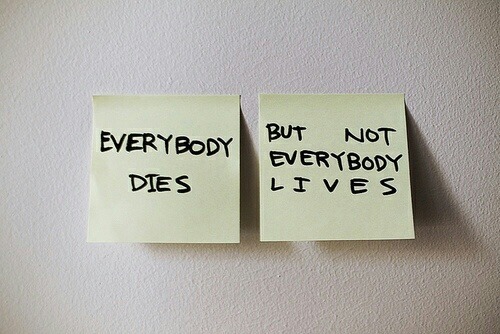 EVERYBODY
DIES
BUT NOT
EVERYBODY
LIVES